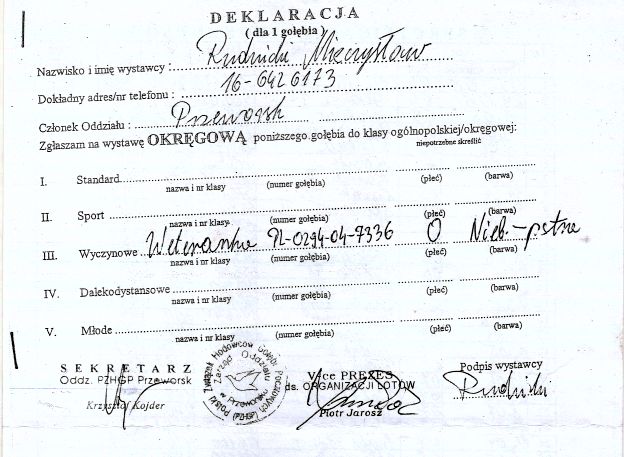 DEKLARACJA
( dla 1 gołębia )
Nazwisko i imię wystawcy : Rudnicki Mieczysław
Dokładny adres/nr telefonu : 16-6426173
Członek Oddziału : Przeworsk
Zgłaszam na wystawę OKRĘGOWĄ poniższego gołębia do klasy ogólnopolskiej/okręgowej:
niepotrzebne skreślić
I. Standard
nazwa i nr klasy (numer gołębia) (płeć) (barwa)
II. Sport
nazwa i nr klasy. (numer gołębia) (płeć) (barwa)
III. Wyczynowe Weteranka PL-0294-04-7336 O Nieb.-pstra
nazwa i nr klasy (numer gołębia) (płeć) (barwa)
IV. Dalekodystansowe
nazwa i nr klasy (numer gołębia) (płeć) (barwa)
V. Młode
nazwa i nr klasy (numer gołębia) (płeć) (barwa)
SEKRETARZ
Oddz. PZHGP Przeworsk
Krzysztof Kojder
Polski Związek Hodowców Gołębi Pocztowych (PZHGP)
Zarząd Oddziału
w Przeworsku
Vice PREZES
ds. ORGANIZACJI LOTÓW
Piotr Jarosz
Podpis wystawcy
Rudnicki